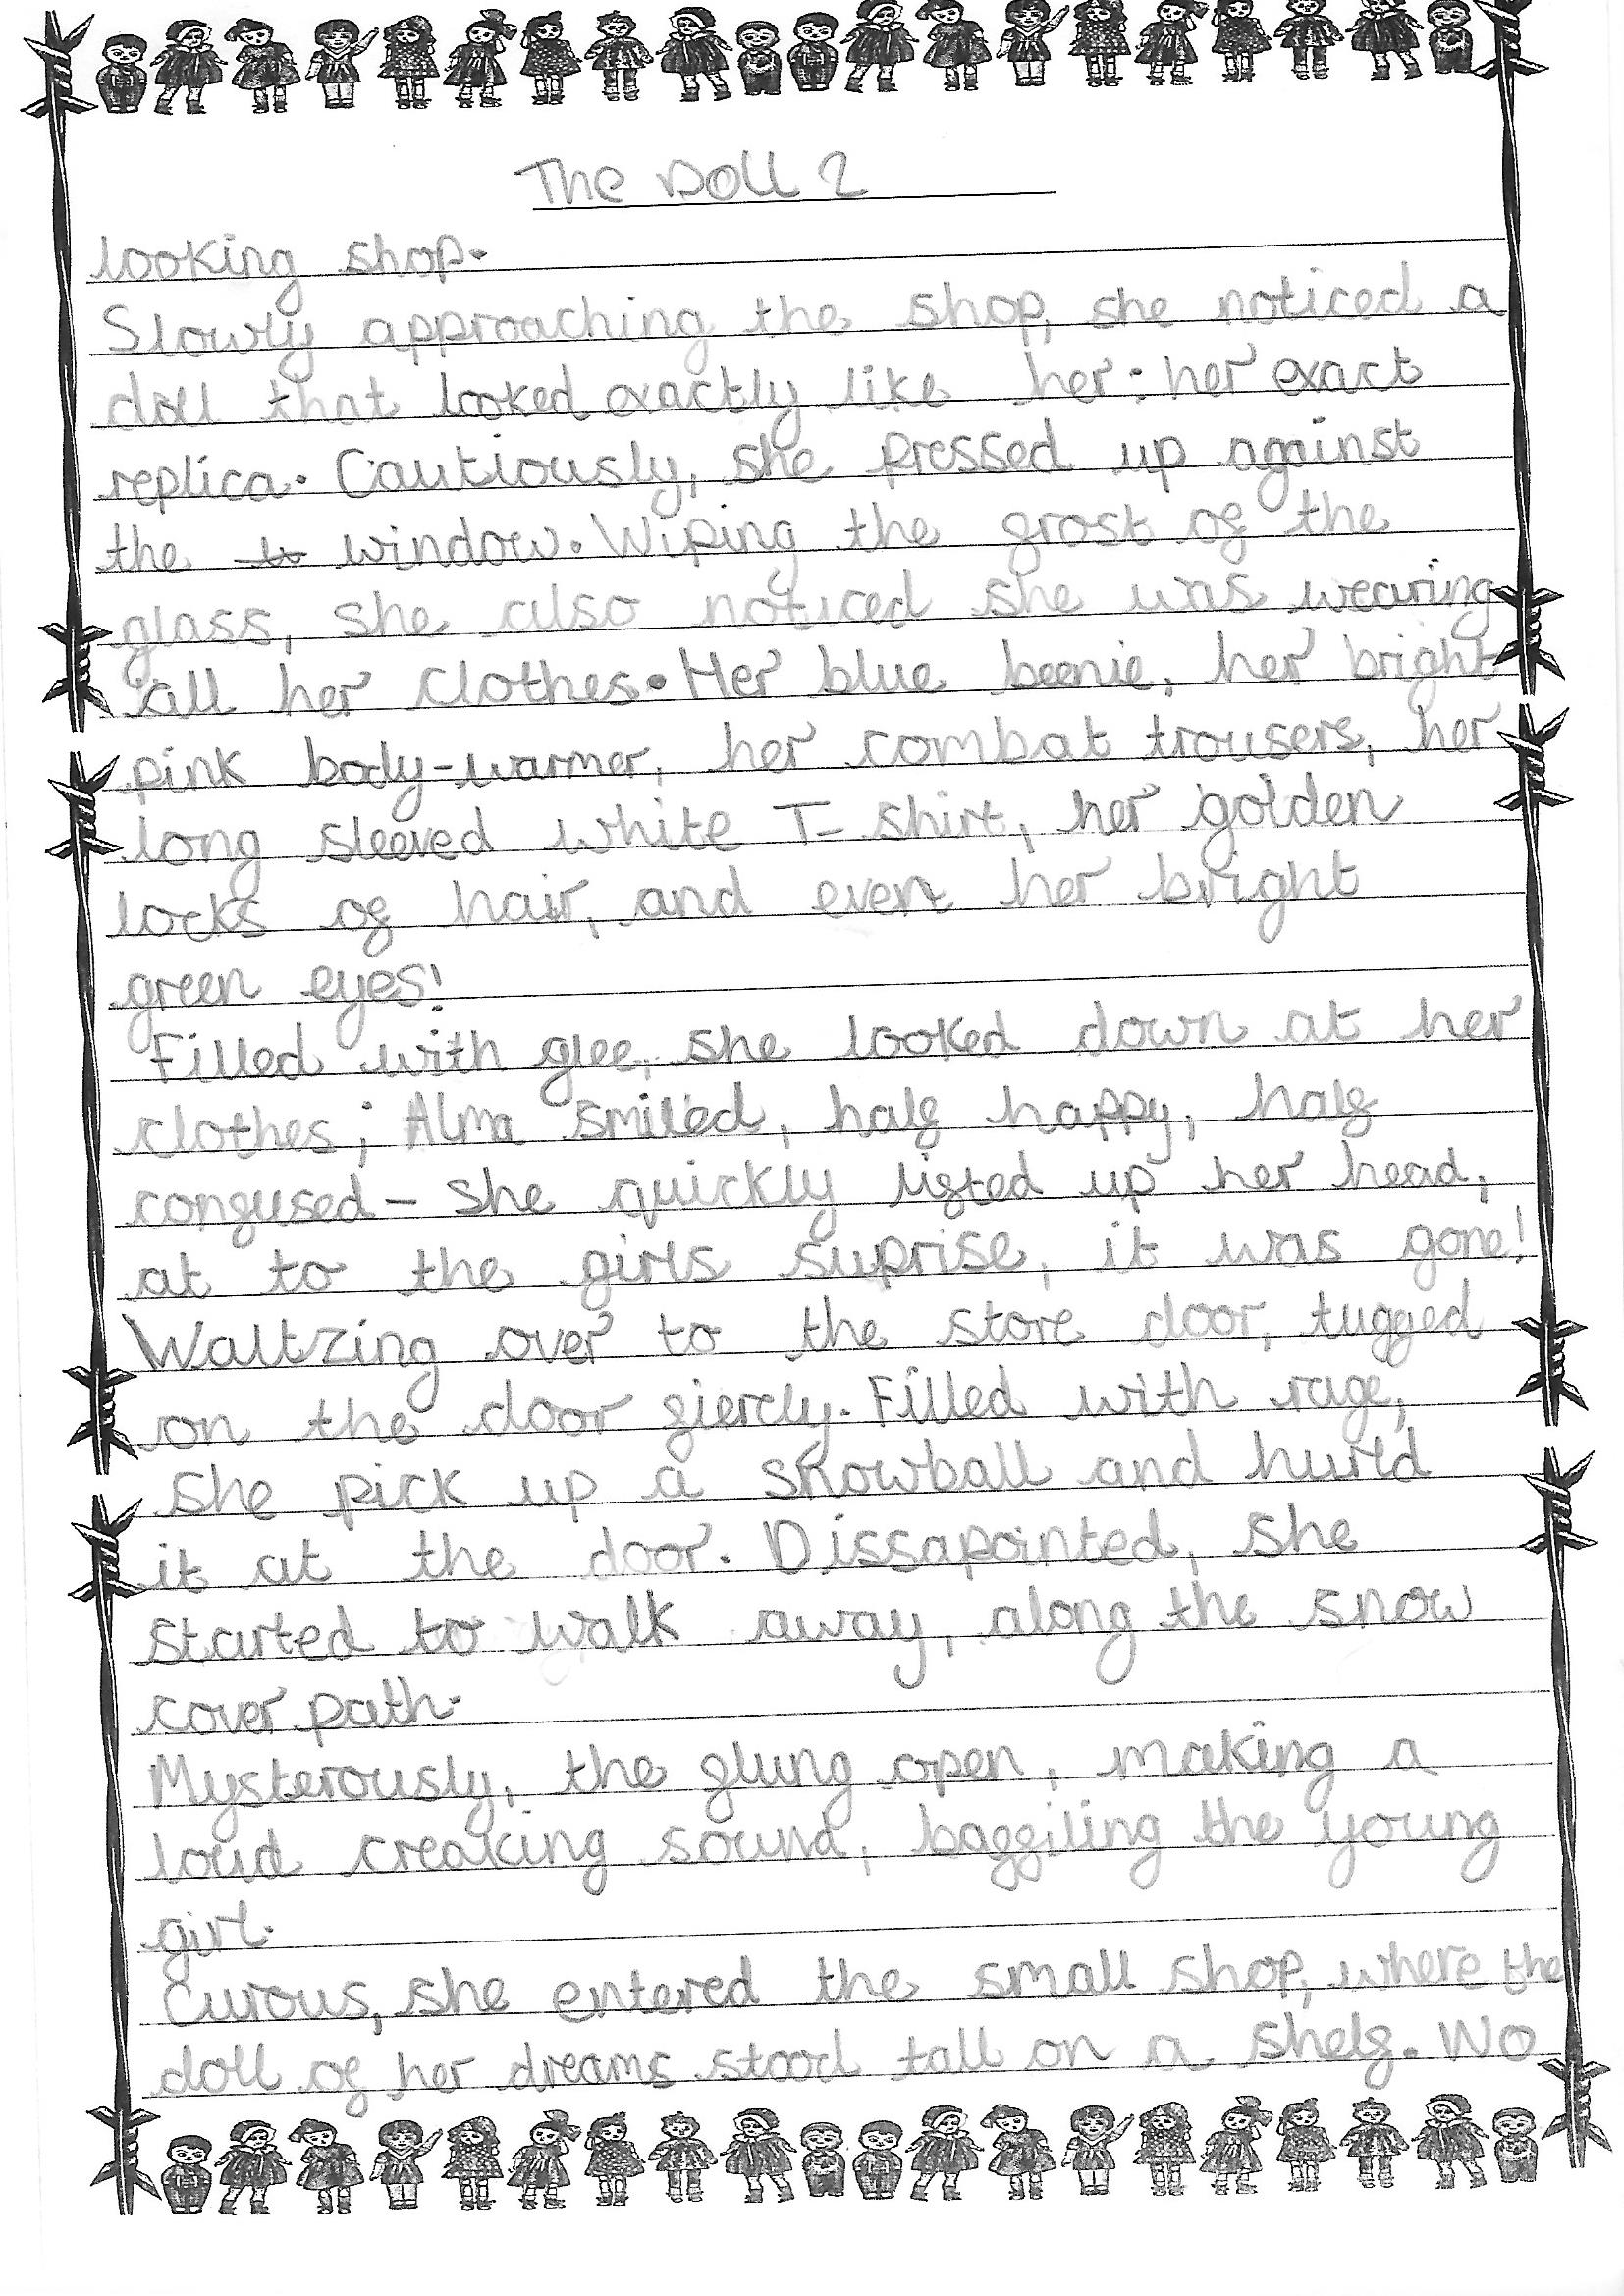 The Doll 2
looking shop.
Slowly approaching the shop, she noticed a
doll that looked exactly like her: her exact
replica. Cautiously, she pressed up against
the window. Wiping the frost of the
glass, she also noticed she was wearing
all her clothes. Her blue beenie, her bright
pink body-warmer, her combat trousers, her
long sleeved white T-shirt, her golden
locks of hair, and even her bright
green eyes!
Filled with glee, she looked down at her
clothes; Alma smiled, half happy, half
confused - she quickly lifted up her head,
at to the girls suprise, it was gone!
Waltzing over to the store door, tugged
on the door fiercly. Filled with rage,
she pick up a snowball and hurld
it at the door. Dissapointed, she
started to walk away, along the snow
cover path.
Mysterously, the flung open, making a
loud creaking sound, baffiling the young
girl.
Curous, she entered the small shop, where the
doll of her dreams stood tall on a shelf. Wo